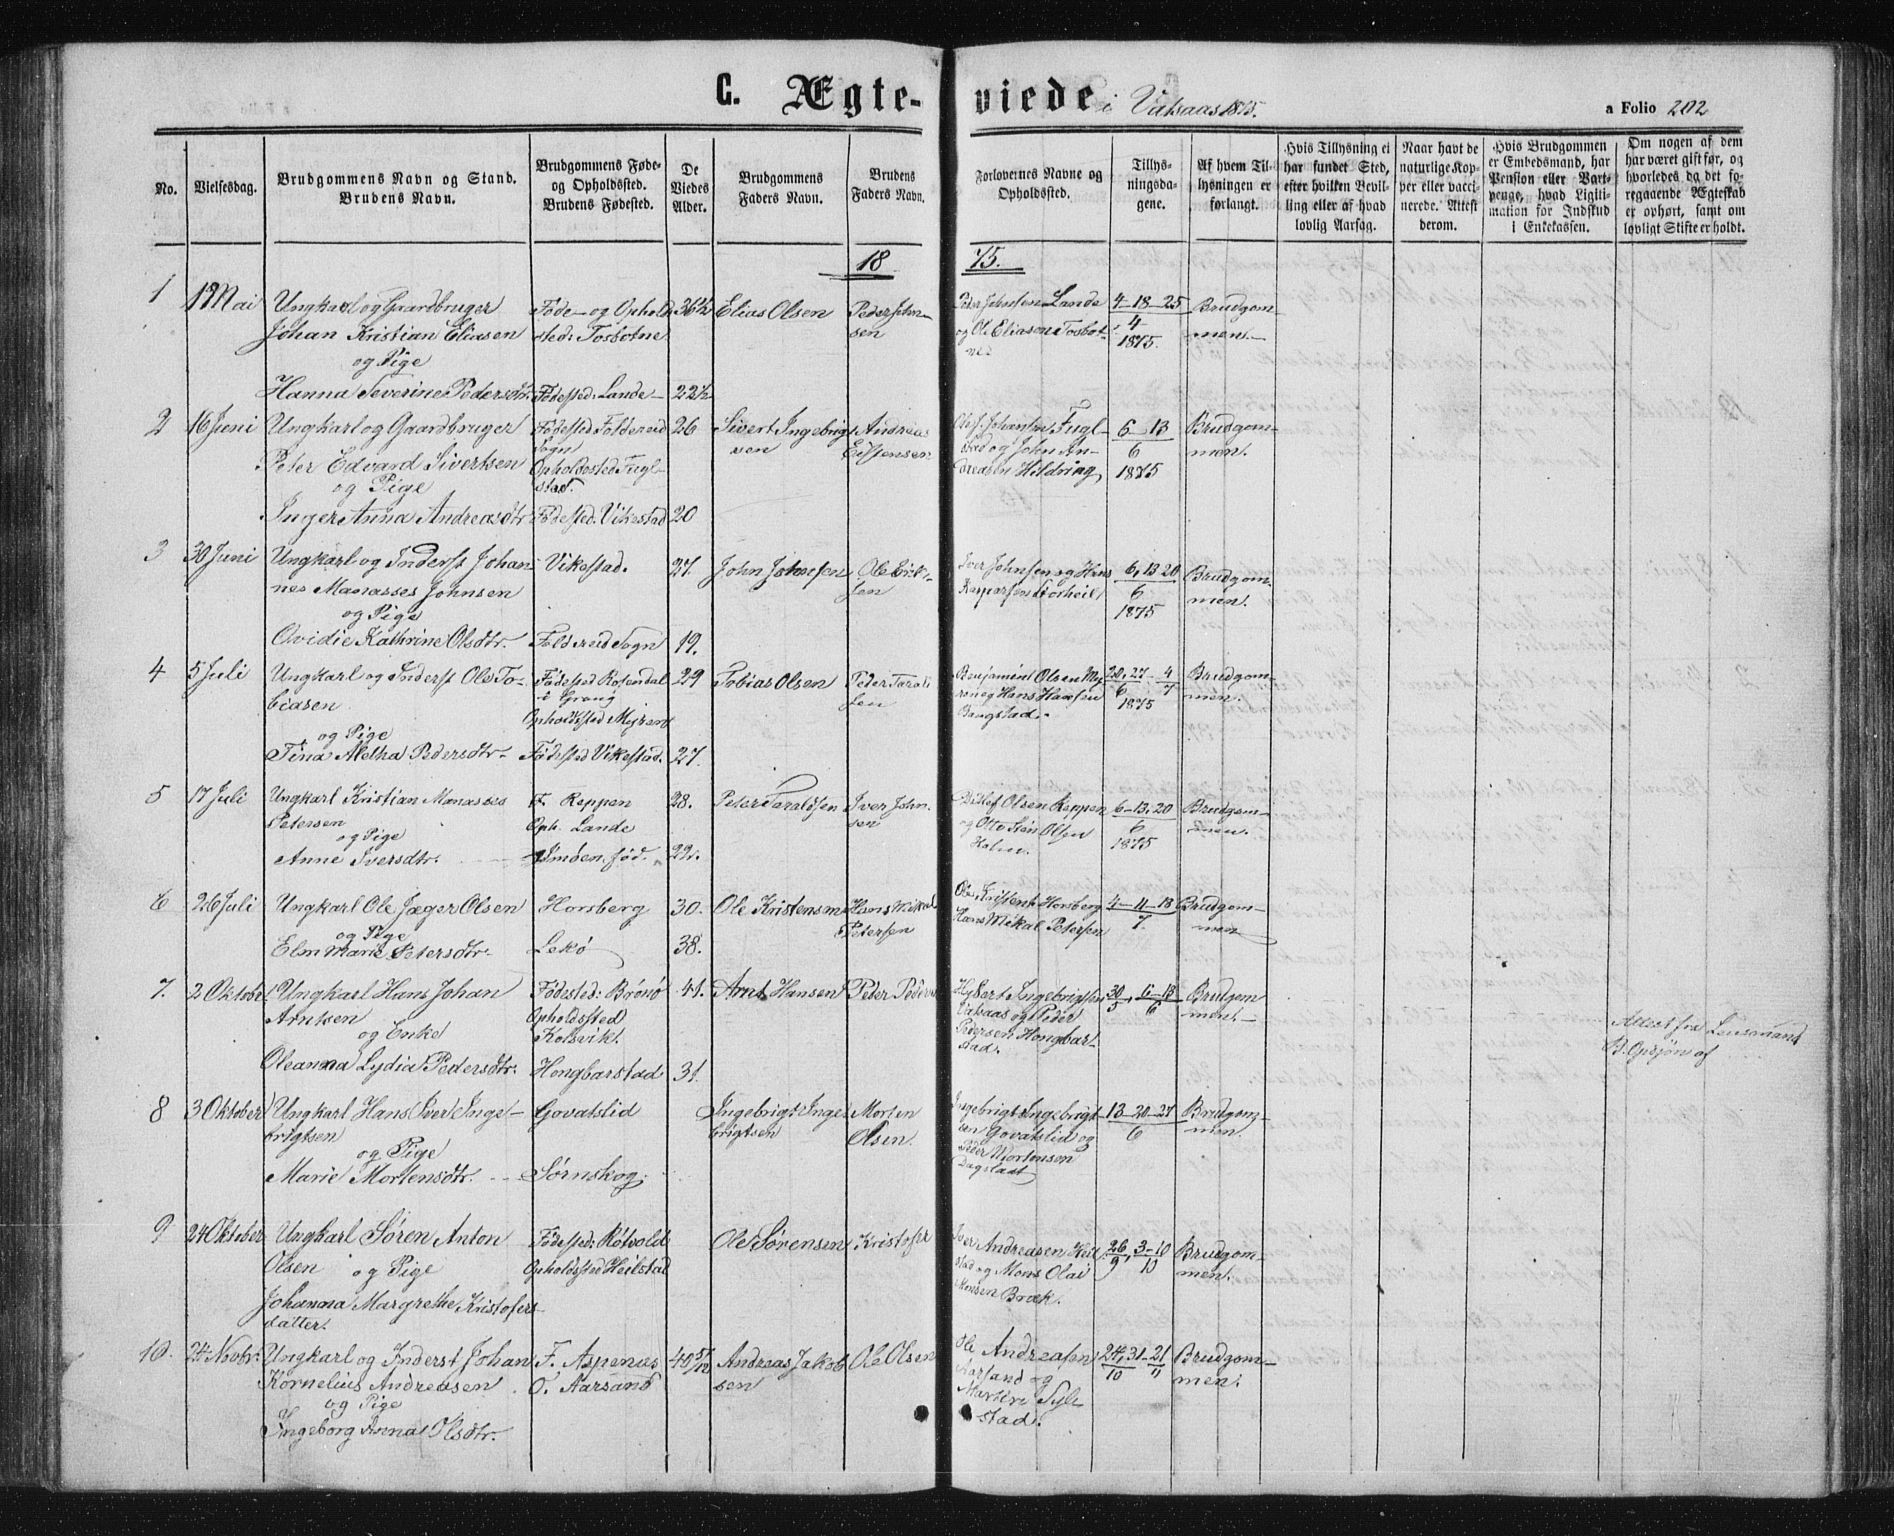 C. Ægte-viede i Vatsaas 1875. a Folio 202
No.
Vielsesdag.
Brudgommens Navn og Stand.
Brudens Navn.
Brudgommens Føde-
og Opholdssted.
Brudens Fødested.
De
Viedes
Alder.
Brudgommens
Faders Navn.
Brudens
Faders Navn.
Forlovernes Navne og
Opholdssted.
Tillys-
ningsda-
gene.
Af hvem Til-
lysningen er
forlangt.
Hvis Tillysning ei
har fundet Sted,
efter hvilken Bevil-
ling eller af hvad
lovlig Aarsag.
Naar havt de
naturlige Kop-
per eller vacci-
nerede. Attest
derom.
Hvis Brudgommen
er Embedsmand, har
Pension eller Vart-
penge, hvad Ligiti-
mation for Indskud
i Enkekassen.
Om nogen af dem
har været gift før, og
hvorledes da det fo-
regaaende Ægteskab
er ophørt, samt om
lovligt Skifte er holdt.
18 75.
1
Mai
Ungkarl og Gaardbruger
Johan Kristian Eliasen
og Pige
Hanna Severine Pedersdtr.
Føde- og Ophold
sted: Tosbotne
Fødested: Lande
36½
22½
Elias Olsen
Peder John-
sen
Peder Johnsen Lande
og Ole Eliasen Tosbot-
nes
4-18-25
4
1875.
Brudgom-
men.
2
16 Juni
Ungkarl og Gaardbruger
Peter Edvard Sivertsen
og Pige
Inger Anna Andreasdtr
Fødested Foldereid
Sogn
Opholdssted Fugl-
stad.
Fødested: Vikestad
26
20
Sivert Ingebrigt
sen
Andreas
Johansen Fugl-
stad og John An-
dreasen Hildring
6-13
6
1875
Brudgom-
men.
3
30 Juni
Ungkarl og Inderst Johan-
nes Manasses Johnsen
og Pige
Ovidie Kathrine Olsdtr.
Vikestad.
Foldereid Sogn
27.
19.
John Johnsen
Ole Erik-
sen
Iver Johnsen og Hans
Kasparsen
6, 13 20
6
1875
Brudgom-
men.
4
5 Juli
Ungkarl og Inderst Ole To-
biasen
og Pige
Tina Metha Pedersdtr.
Fødested Rosendal
i Grong
Opholdssted Myrene
Fødested Vikestad.
29
27.
Tobias Olsen
Peder
sen
Benjamin Olsen My-
ren og Hans Hansen
Bangstad.
20, 27 - 4
6 7
1875
Brudgom-
men.
5
17 Juli
Ungkarl Kristian Manasses
Petersen
og Pige
Anne Iversdtr.
F. Reppen
Oph. Lande
Simøen fød.
28.
22.
Peter Taraldsen
Iver John-
sen
Ditlef Olsen Reppen
og Otto Sten Olsen
Holm.
6-13, 20
6
1875
Brudgom-
men.
6
26 Juli
Ungkarl Ole Jæger Olsen
og Pige
Elen Marie Petersdtr.
Horsberg
Lekø
30.
38.
Ole Kristensen
Hans Mikal
Petersen
Ole Kristensen Horsberg
Hans Mikal Petersen
4-11-18
7.
Brudgom-
men
7.
2 Oktobr
Ungkarl Hans Johan
Arntsen
og Enke
Oleanna Lydia Pedersdtr.
Fødested: Brønø
Opholdssted
Kolsvik.
Hongbarstad
41.
31.
Arnt Hansen
Peter Peders
Ingebrigtsen
Vatsaas og Peder
Pedersen Hongbar-
stad.
30, 6-13
5 6
Brudgom
men.
Attest fra Lensmand
B. Opsjøn af
8
3 Oktober
Ungkarl Hans Iver Inge-
brigtsen
og Pige
Marie Mortensdtr.
Govatslid
Sørnskog.
Ingebrigt Inge-
brigtsen
Morten
Olsen.
Ingebrigt Ingebrigt-
sen Govatslid og
Peder Mortensen
Dagslaat
13-20-27
6
Brudgom-
men.
9
24 Oktober
Ungkarl Søren Anton
Olsen og Pige
Johanna Margrethe Kristofers-
datter.
Fødested: Røtvold
Opholdssted Heilstad
Ole Sørensen
Kristofer
Iver Andreasen Heil-
stad og Mons Olai
Monsen Bræk.
26, 3-10
9 10
Brudgom-
men.
10.
Novbr:
Ungkarl og Inderst Johan
Kornelius Andreasen
og Pige
Ingeborg Anna Olsdtr.
F. Aspenæs
O. Aarsand
40 5/12
Andreas Jakob
sen
Ole Olsen
Ole Andreasen
Aarsand og
Martin Syl-
stad.
24, 31 - 21
10 11
Brudgom-
men.